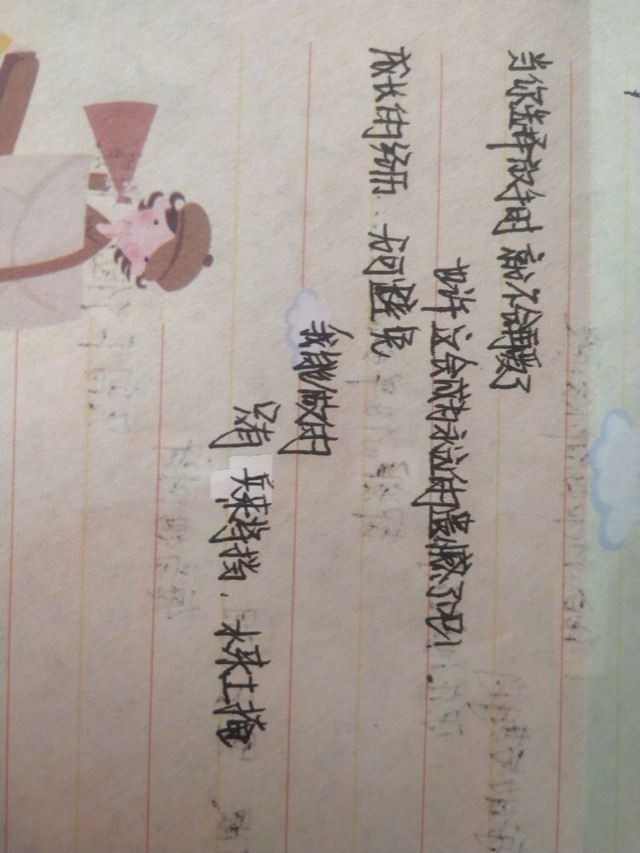 当你选择放弃时 就不会再了
也许这会成为永远的遗憾了吧!
成长的经历、无可避免
我能做的
只有 兵来将挡,水来土掩